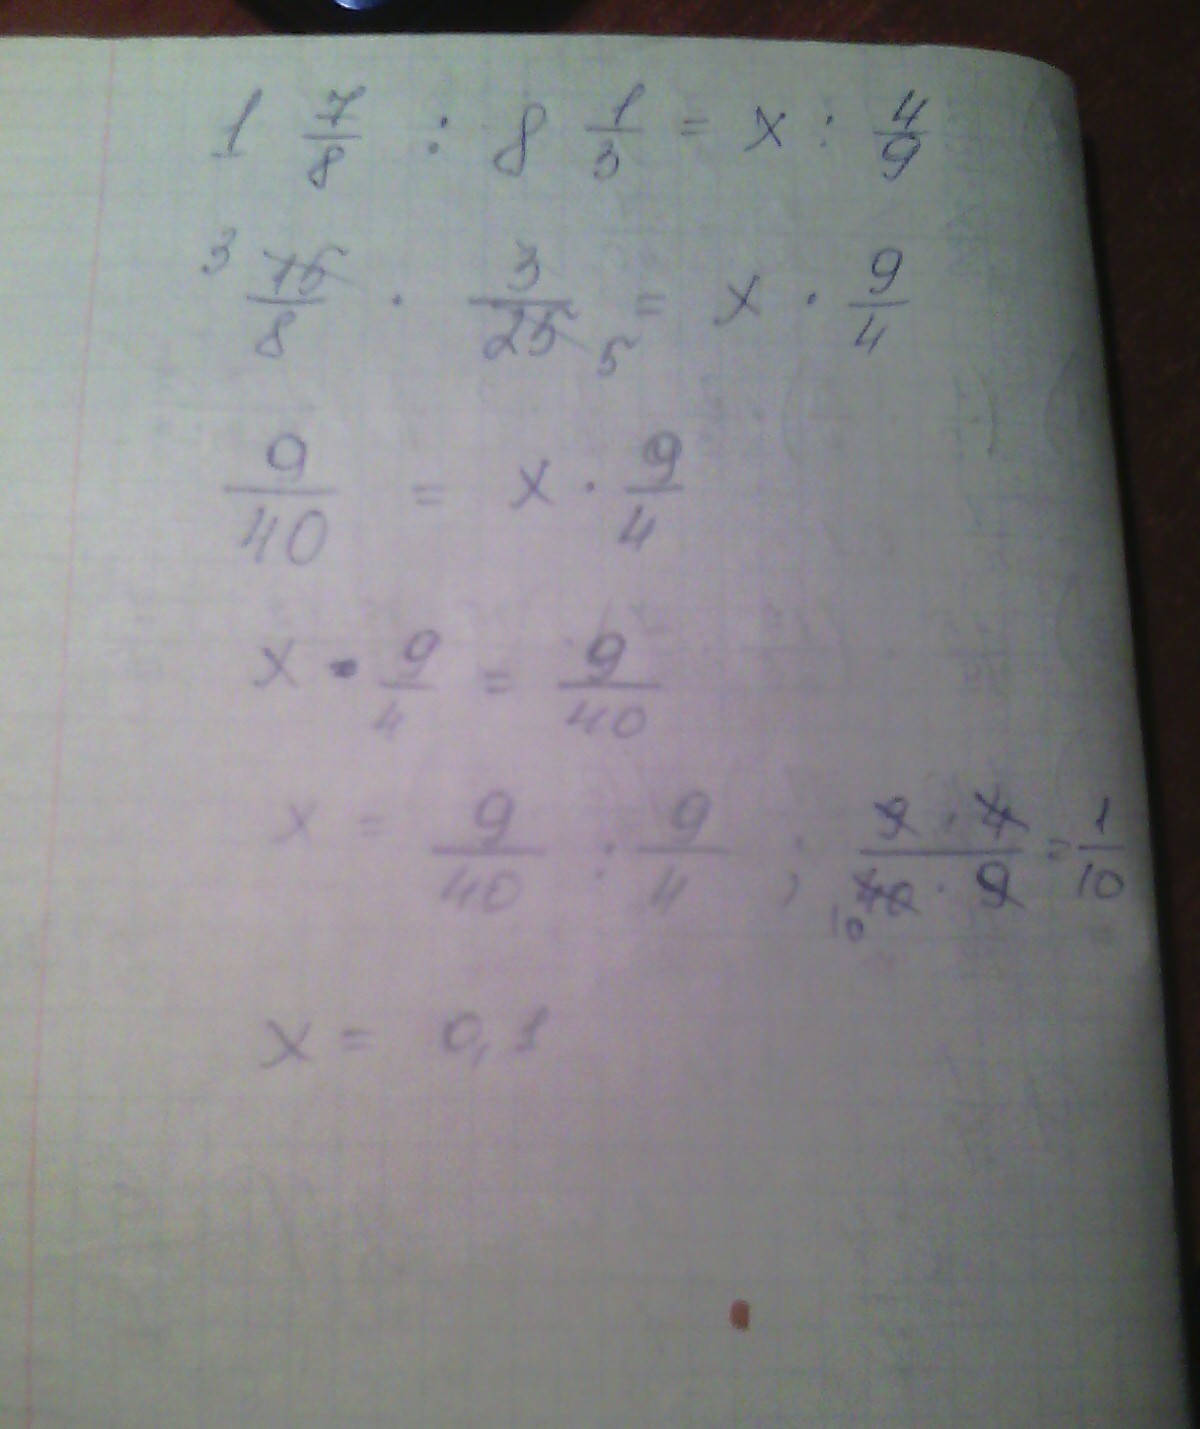 1 7/8 : 8 1/3 = x : 4/9
3 15/8 · 3/25 5 = x · 9/4
9/40 = x · 9/4
x · 9/4 = 9/40
x = 9/40 : 9/4 ; 9 · 4 / 10 40 · 9 = 1/10
x = 0,1